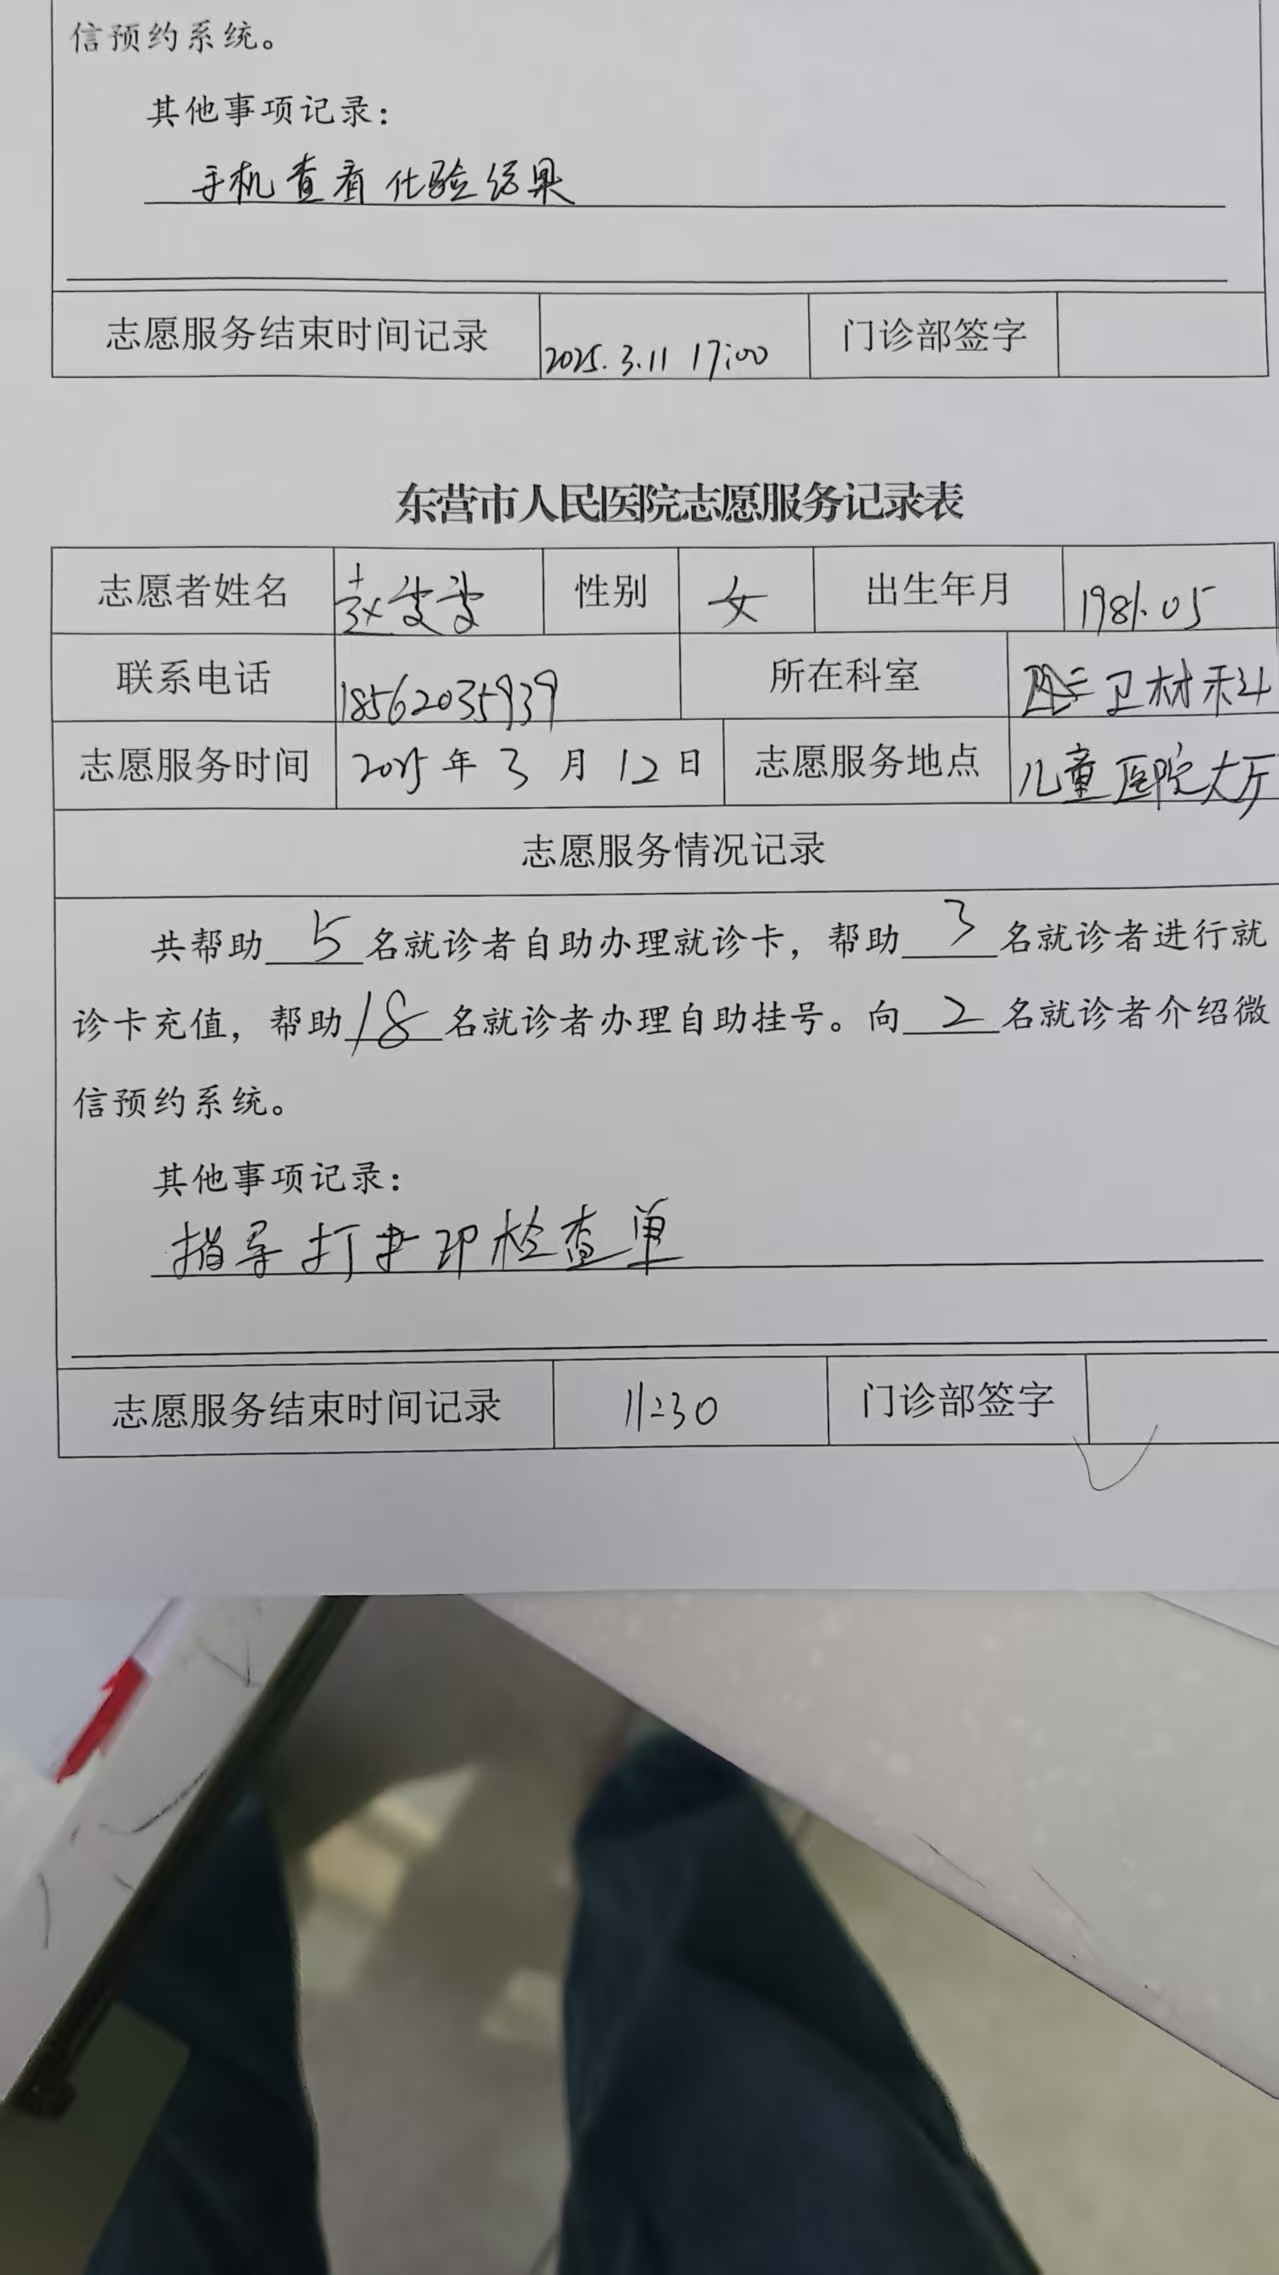 信预约系统。
其他事项记录：
手机查看化验结果
志愿服务结束时间记录 2025.3.11 17:00 门诊部签字
东营市人民医院志愿服务记录表
志愿者姓名 赵雯雯 性别 女 出生年月 1981.05
联系电话 18562035939 所在科室 卫材科
志愿服务时间 2025年3月12日 志愿服务地点 儿童医院大厅
志愿服务情况记录
共帮助 5 名就诊者自助办理就诊卡，帮助 3 名就诊者进行就
诊卡充值，帮助 18 名就诊者办理自助挂号。向 2 名就诊者介绍微
信预约系统。
其他事项记录：
指导打印检查单
志愿服务结束时间记录 11:30 门诊部签字